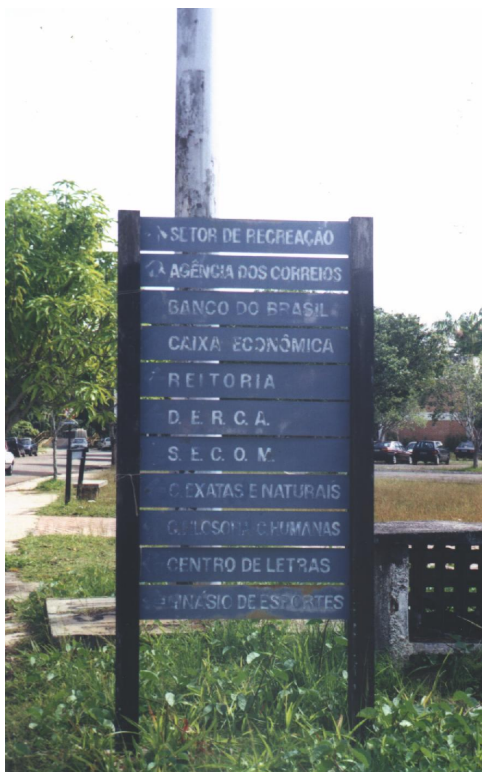 SETOR DE RECREAÇÃO
AGÊNCIA DOS CORREIOS
BANCO DO BRASIL
CAIXA ECONÔMICA
REITORIA
D. E. R. C. A.
S. E. C. O. M.
C. EXATAS E NATURAIS
C. FILOSOFIA C. HUMANAS
CENTRO DE LETRAS
GINÁSIO DE ESPORTES